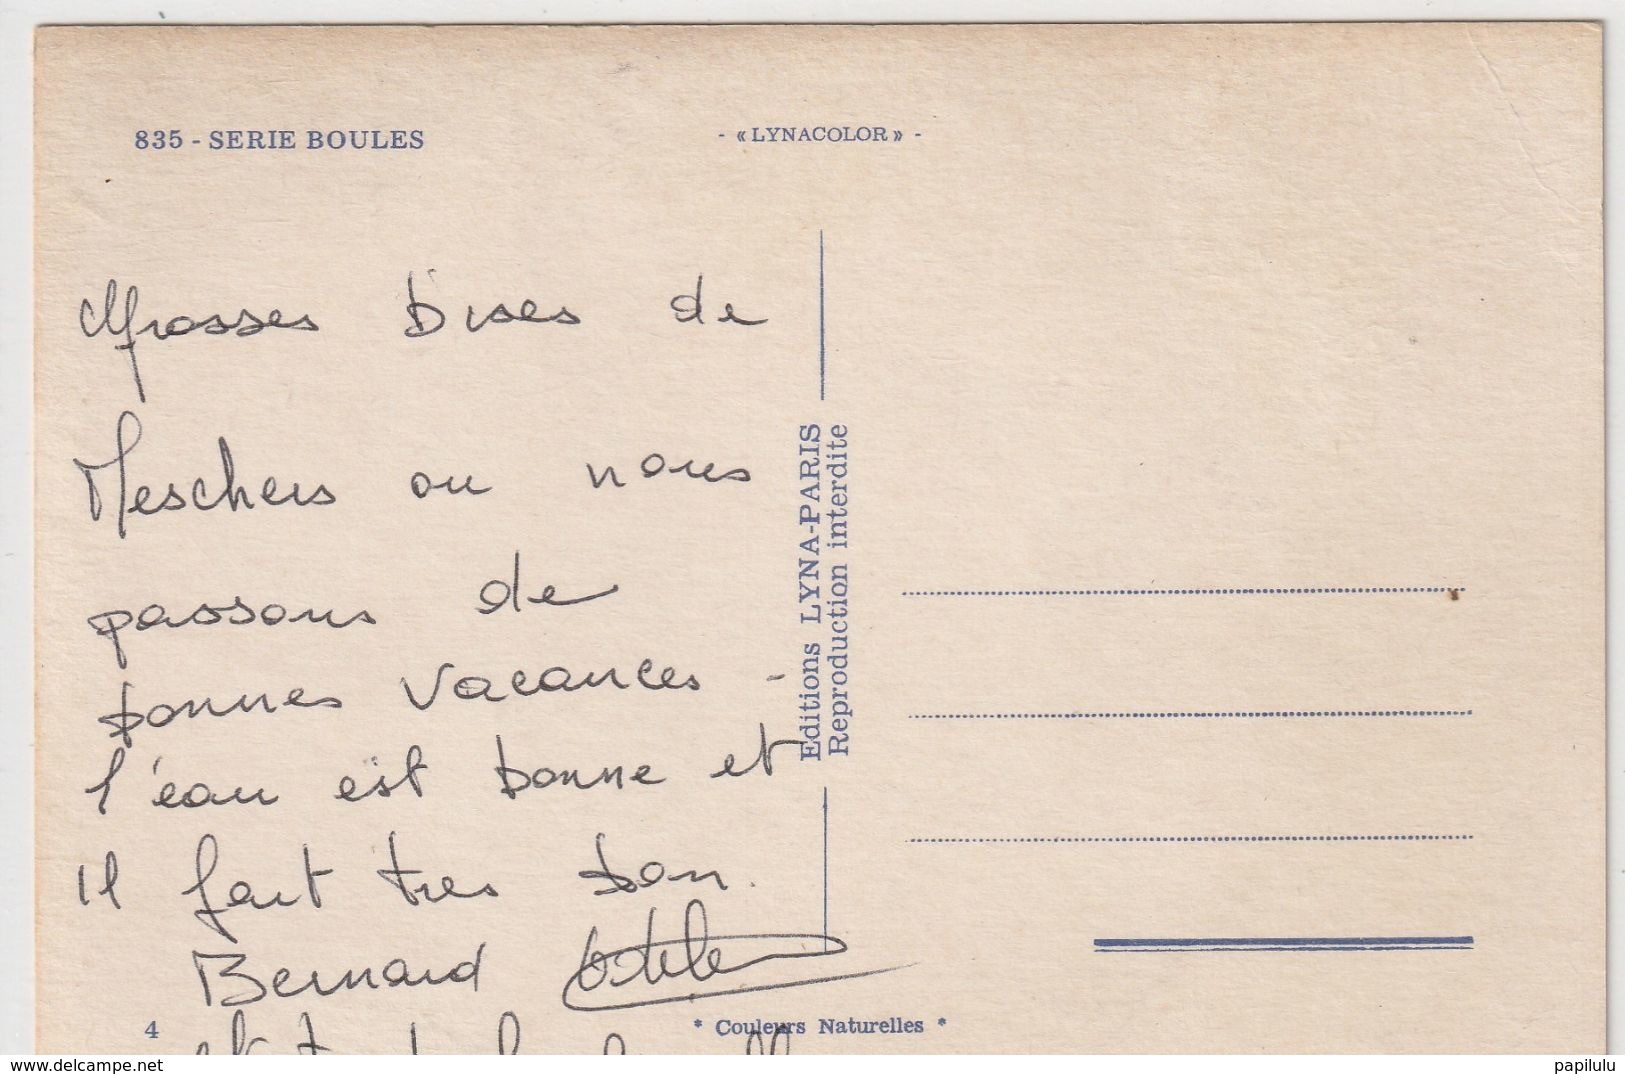 835 - SERIE BOULES
- « LYNACOLOR » -
Grosses bises de
Meschers ou nous
passons de
bonnes vacances -
l'éau est bonne et
il fait tres bon.
Bernard
Editions LYNA-PARIS
Reproduction interdite
4
* Couleurs Naturelles *
www.delcampe.net
papilulu